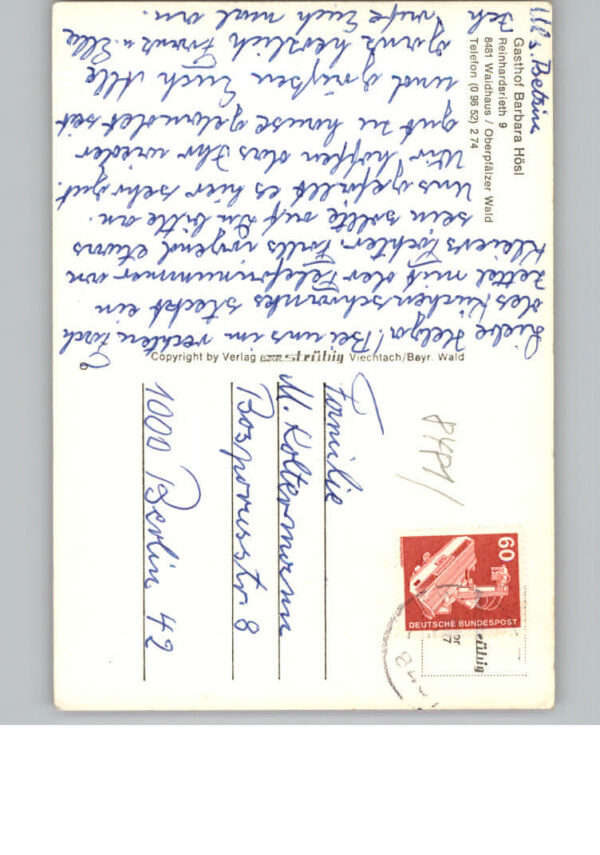 Gasthof Barbara Hösl
Reinhardsrieth 9
8481 Waidhaus / Oberpfälzer Wald
Telefon (0 96 52) 2 74
Liebe Helga! Bei uns im rechten Fach
des Küchenschranks steckt ein
Zettel mit der Telefonnummer von
Kleiers Tochter. Falls irgend etwas
sein sollte ruf dan bitte an.
Uns gefällt es hier sehr gut.
Wir hoffen das Ihr wieder
gut zu hause gelandet seit
und grüßen Euch Alle
ganz herzlich Franz u. Elke
Ich rufe Euch mal an.
Uli u. Bettina
Copyright by Verlag strübig Viechtach/Bayr. Wald
Familie
M. Koltermann
Bosporusstr 8
1000 Berlin 42
8481
60
DEUTSCHE BUNDESPOST
strübig